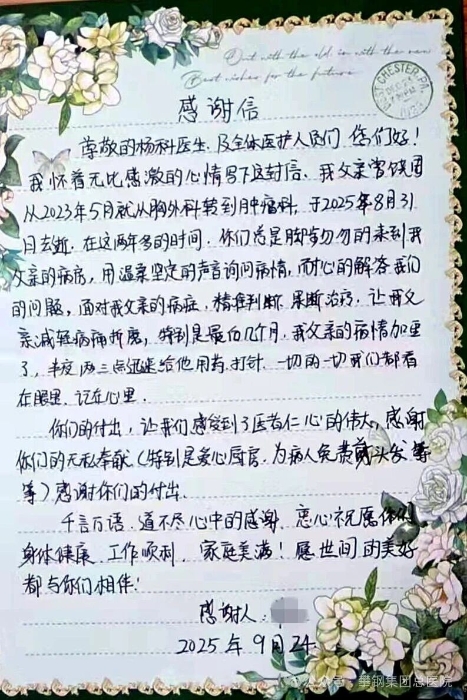 Out with the old, in with the new
Best wishes for the future
感谢信
尊敬的杨科医生及全体医护人员们 您们好!
我怀着无比感激的心情写下这封信. 我父亲常
从2023年5月就从胸外科转到肿瘤科, 于2025年8月31
日去逝. 在这两年多的时间. 你们总是脚步匆匆的来到我
父亲的病房, 用温柔坚定的声音询问病情, 耐心的解答我们
的问题, 面对我父亲的病症, 精准判断. 果断治疗. 让我父
亲减轻病痛折磨, 特别是最后几个月. 我父亲的病情加重
了, 半夜两三点还起给他用药. 打针. 一切的一切我们都看
在眼里. 记在心里.
你们的付出, 让我们感受到了医者仁心的伟大, 感谢
你们的无私奉献 (特别是爱心厨房. 为病人免费剪头发等
等) 感谢你们的付出.
千言万语. 道不尽心中的感谢. 衷心祝愿你们
身体健康. 工作顺利. 家庭美满! 愿世间的美好
都与你们相伴!
感谢人:
2025年9月24
公众号 · 攀钢集团总医院